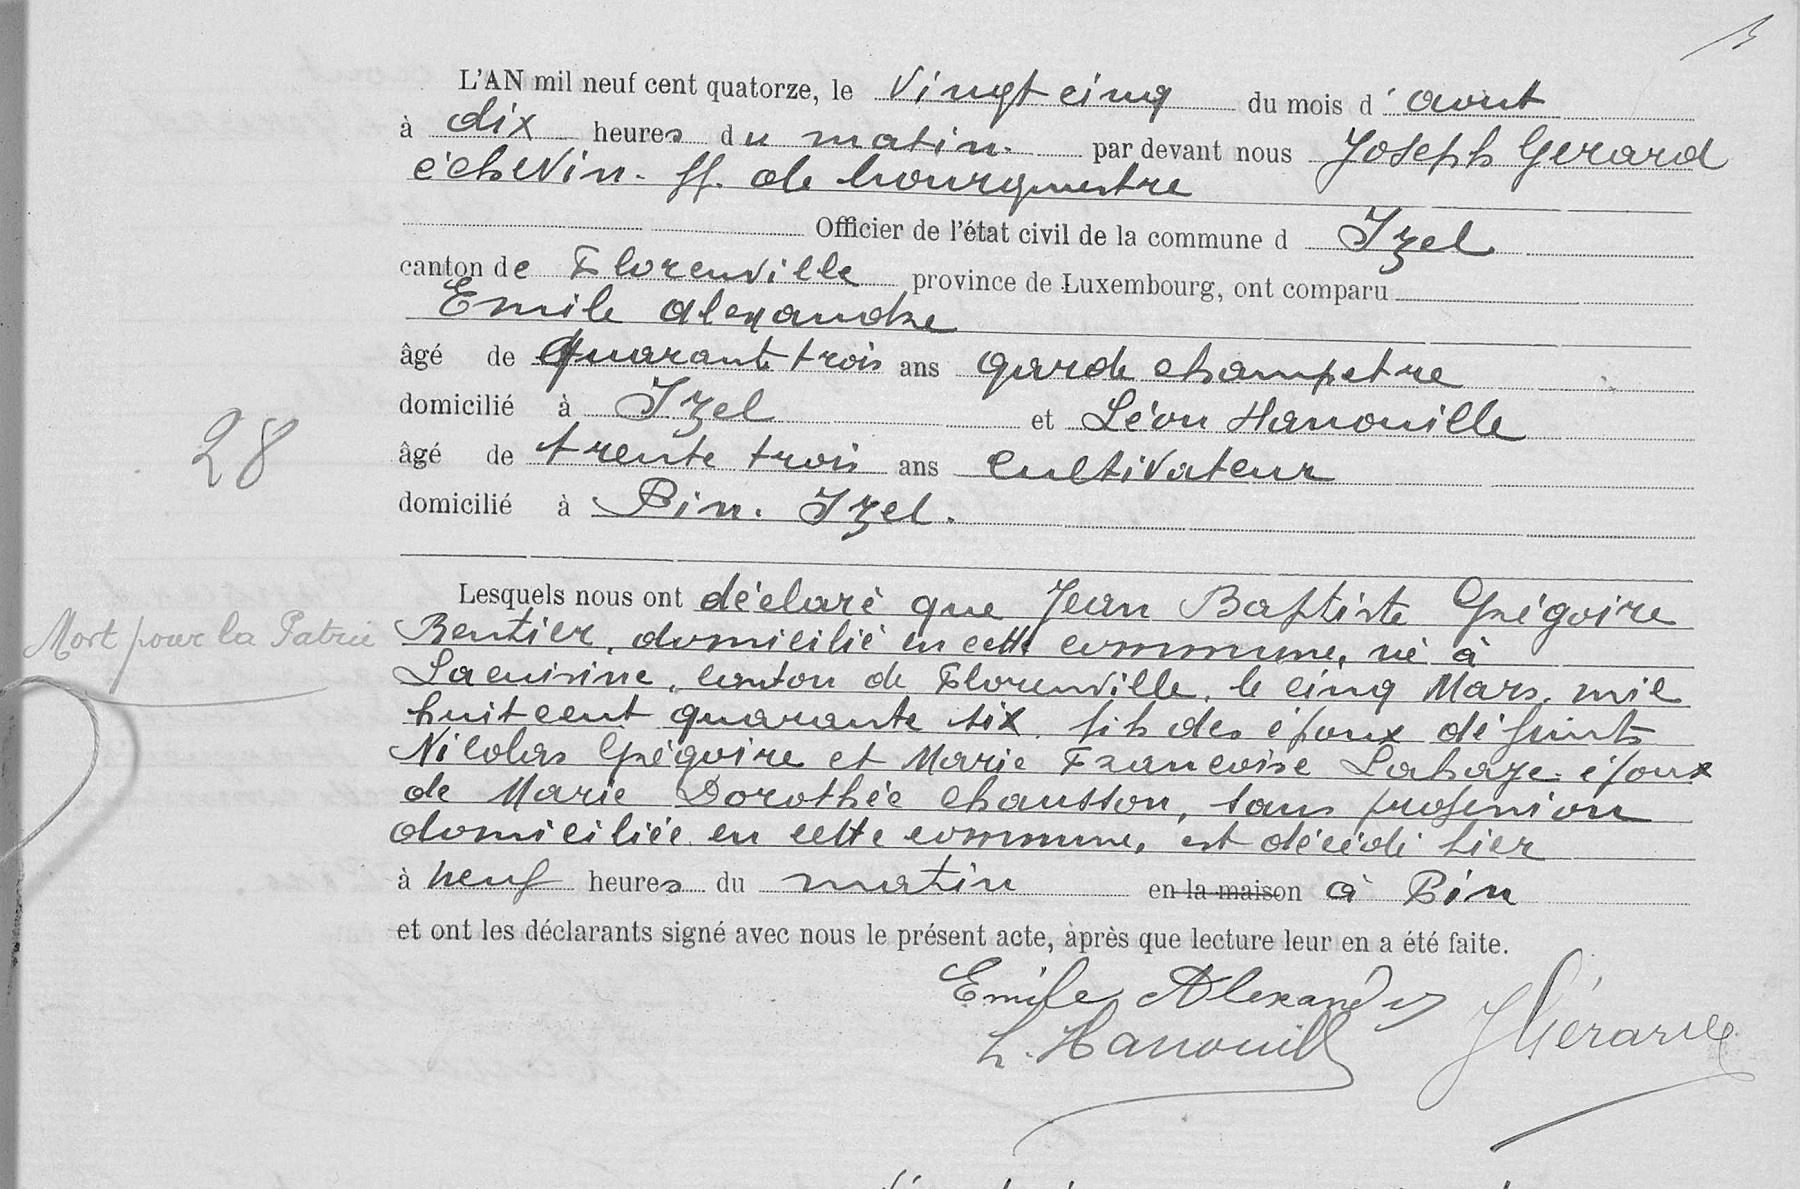 L'AN mil neuf cent quatorze, le vingt cinq du mois d'aout
à dix heures du matin. par devant nous Joseph Gerard
échevin. ff. de bourgmestre
Officier de l'état civil de la commune d Izel
canton de Florenville province de Luxembourg, ont comparu
Emile Alexandre
âgé de quarante trois ans garde champetre
domicilié à Izel et Léon Hanouille
28
âgé de trente trois ans cultivateur
domicilié à Pin. Izel.
Lesquels nous ont déclaré que Jean Baptiste Grégoire
Mort pour la Patrie
Rentier, domicilié en cette commune, né à
Lacuisine, canton de Florenville, le cinq Mars, mil
huit cent quarante six, fils des époux défunts
Nicolas Grégoire et Marie Francoise Lahaye. époux
de Marie Dorothée Chausson, sans profession
domiciliée en cette commune, est décédé hier
à neuf heures du matin en la maison à Pin
et ont les déclarants signé avec nous le présent acte, après que lecture leur en a été faite.
Emile Alexandre
L. Hanouille
J Gérard